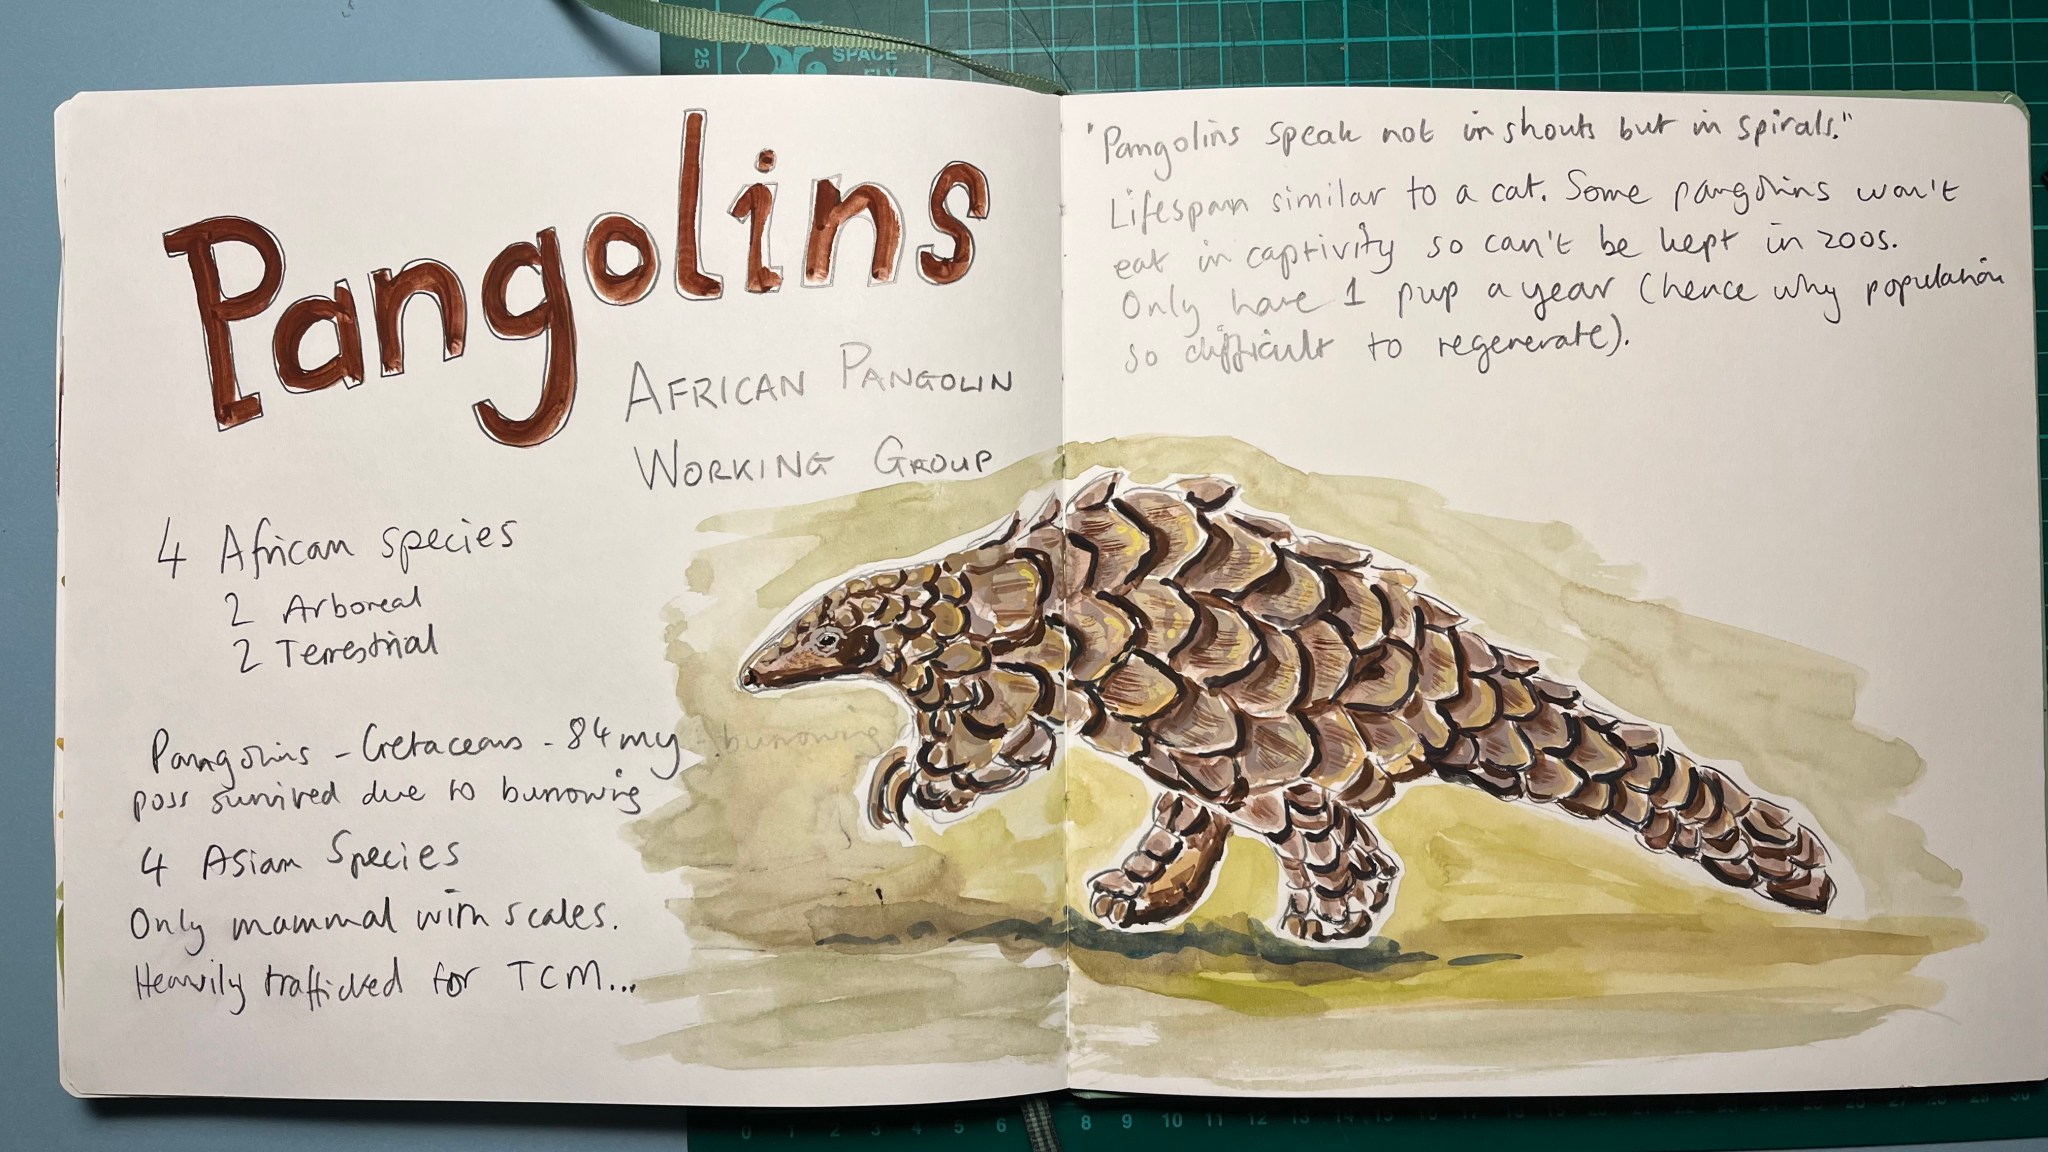 SPACE
FLY
25
Pangolins
AFRICAN PANGOLIN
WORKING GROUP
4 African species
2 Arboreal
2 Terrestrial
Pangolins - Cretaceous - 84my burrowing
poss survived due to burrowing
4 Asian Species
Only mammal with scales.
Heavily trafficked for TCM...
"Pangolins speak not in shouts but in spirals."
Lifespan similar to a cat. Some pangolins won't
eat in captivity so can't be kept in zoos.
Only have 1 pup a year (hence why population
so difficult to regenerate).
0 1 2 3 4 5 6 8 9 10 11 12 13 14 15